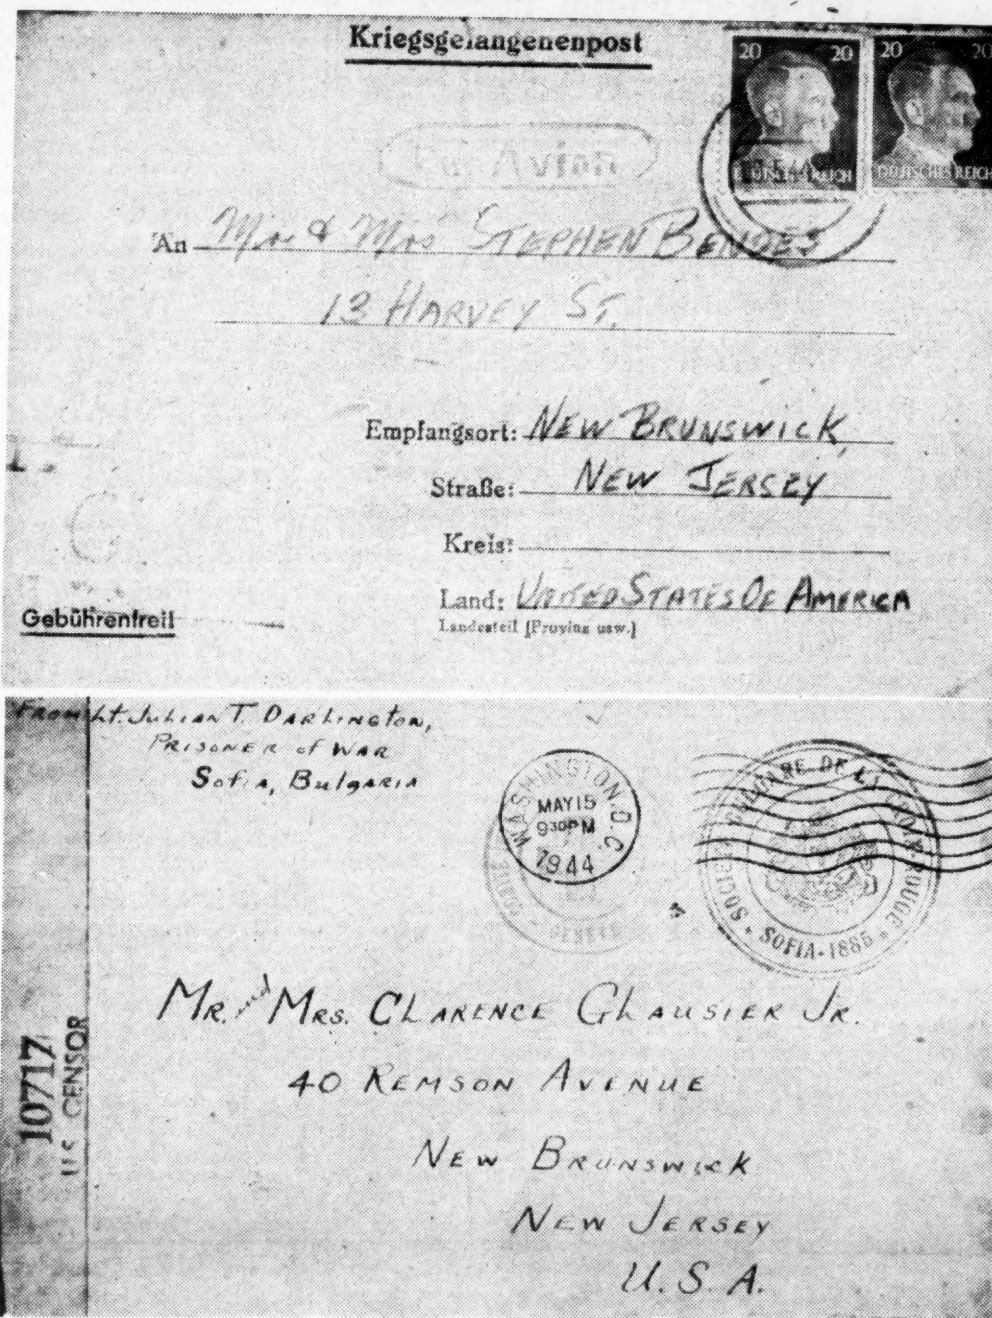 Kriegsgefangenenpost
20 20 20 20
DEUTSCHES REICH DEUTSCHES REICH
Par Avion
An Mr & Mrs STEPHEN BENDES
13 HARVEY ST.
Empfangsort: NEW BRUNSWICK,
Straße: NEW JERSEY
Kreis:
Land: UNITED STATES OF AMERICA
Landesteil [Provinz usw.]
Gebührenfrei!
FROM Lt. JULIAN T. DARLINGTON,
PRISONER of WAR
Sofia, Bulgaria
WASHINGTON, D.C.
MAY 15
930PM
1944
DE LA CROIX-ROUGE
SOFIA-1885
MR. and MRS. CLARENCE GLAUSIER JR.
40 REMSON AVENUE
NEW BRUNSWICK
NEW JERSEY
U.S.A.
10717
U.S. CENSOR